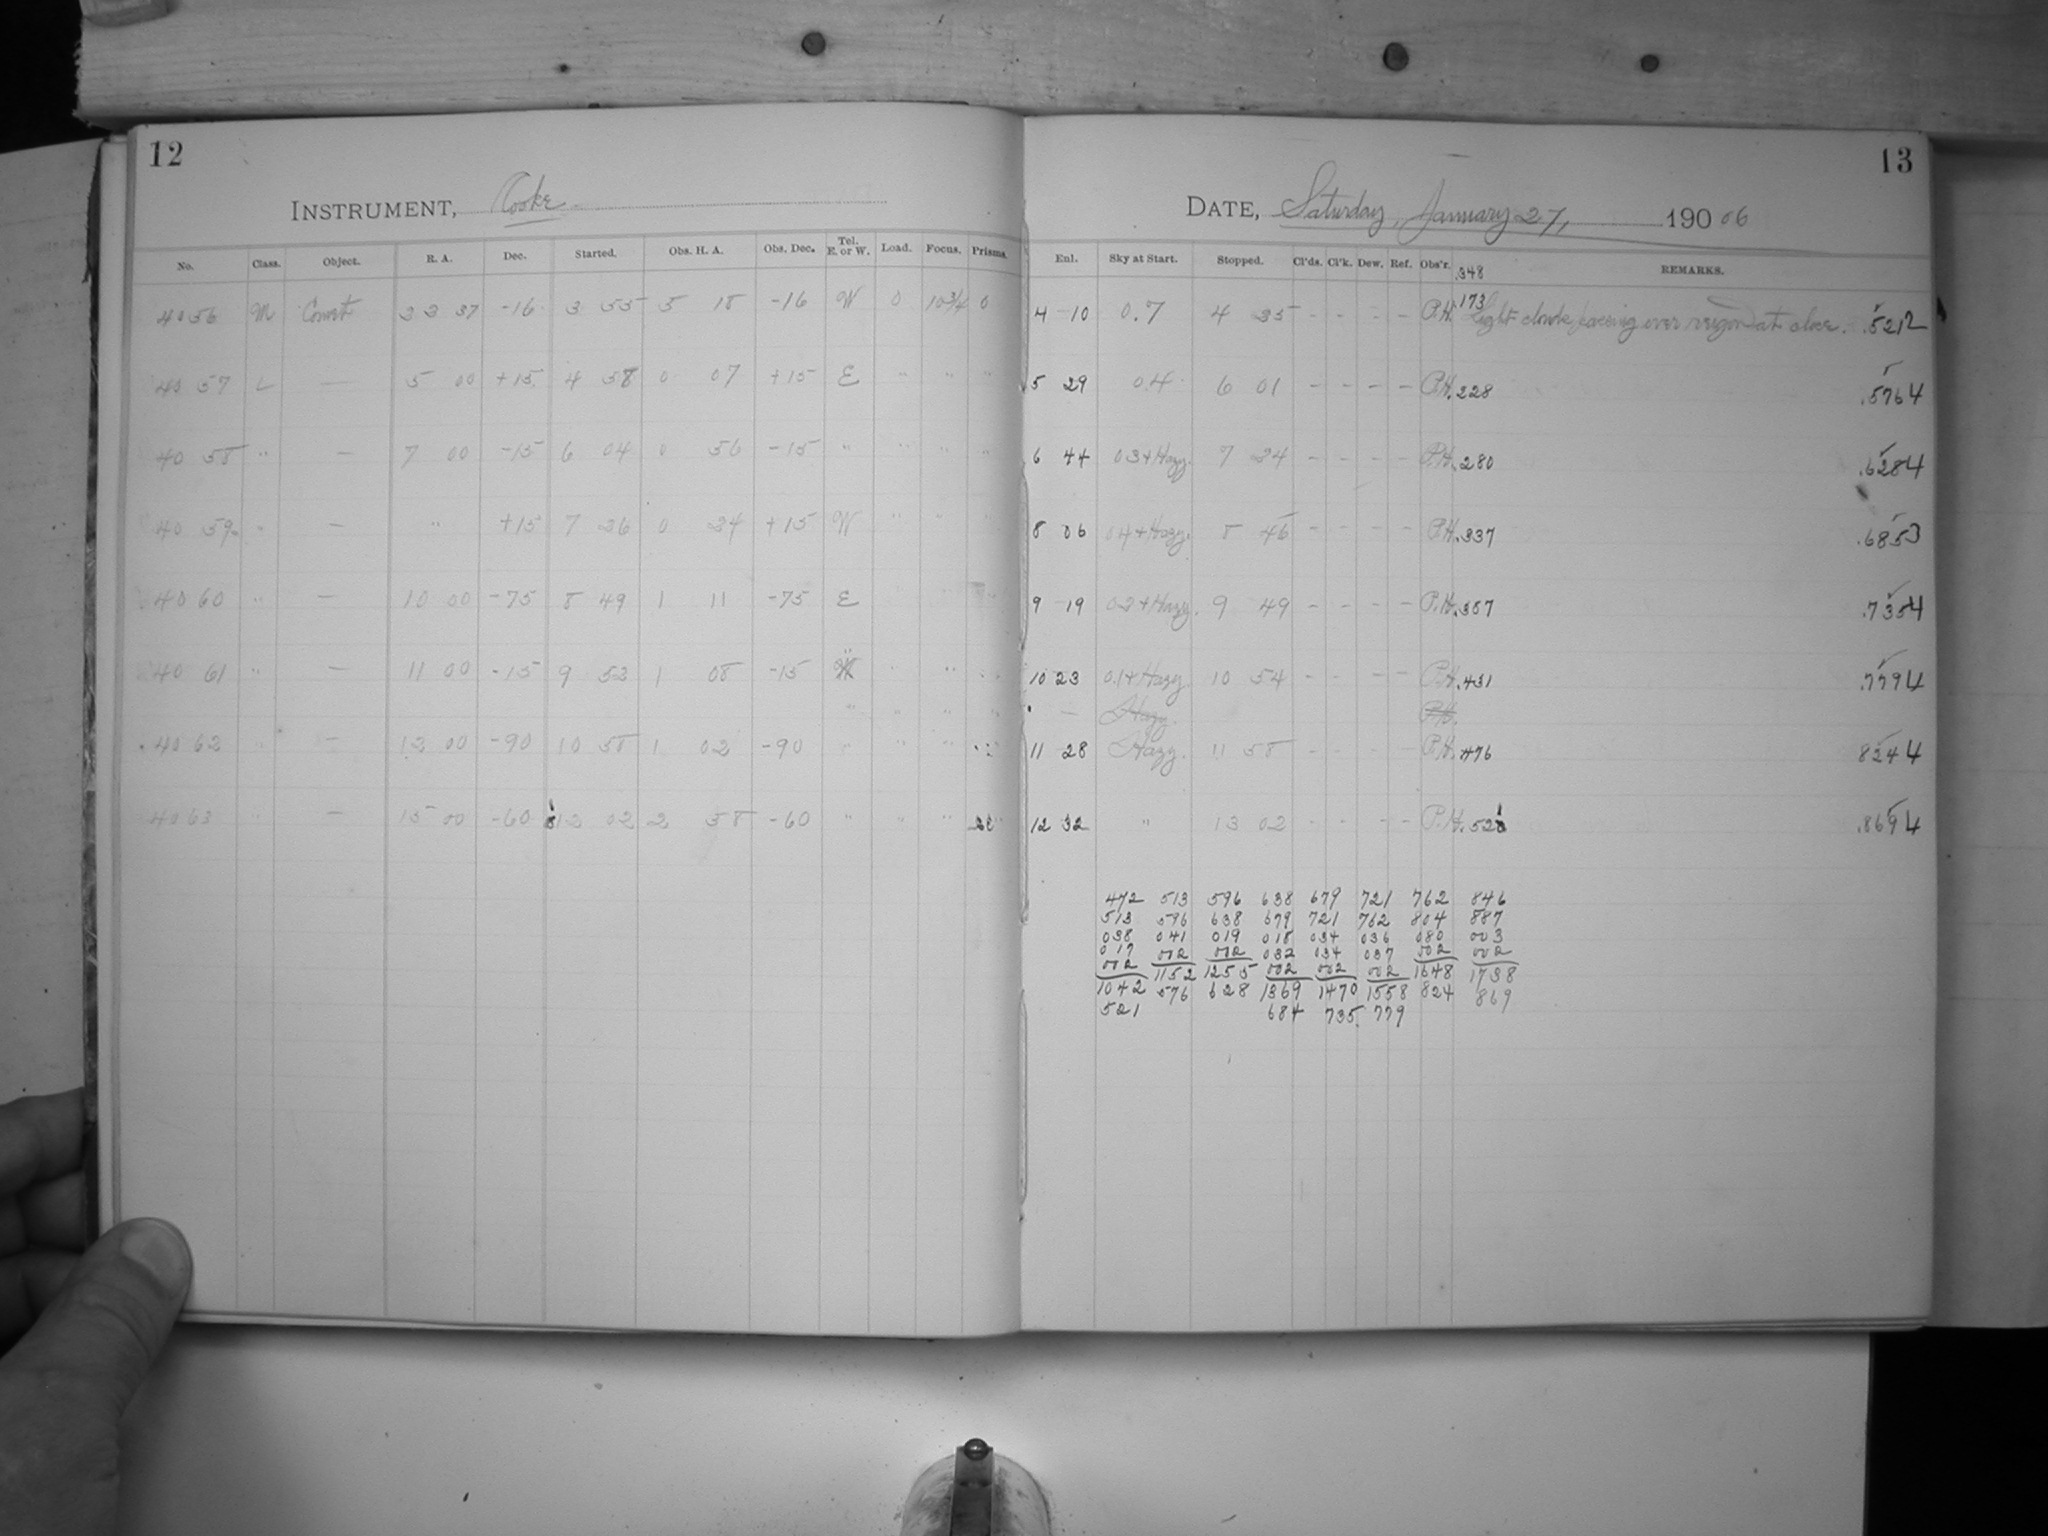 12
INSTRUMENT, Cooke
No. Class. Object. R. A. Dec. Started. Obs. H. A. Obs. Dec. Tel. E. or W. Load. Focus. Prisms.
4056 M Comet 23 37 -16 3 55 5 18 -16 W 0 10 3/4 0
4057 L — 5 00 +15 4 58 0 07 +15 E " " "
4058 " — 7 00 -15 6 04 0 56 -15 " " " "
4059 " — " +15 7 26 0 24 +15 W " " "
4060 " — 10 00 -75 8 49 1 11 -75 E
4061 " — 11 00 -15 9 53 1 08 -15 " " " "
" " " "
4062 " — 12 00 -90 10 58 1 02 -90 " " " "
4063 " — 15 00 -60 12 02 2 58 -60 " " "
13
DATE, Saturday, January 27, 190 06
Enl. Sky at Start. Stopped. Cl'ds. Cl'k. Dew. Ref. Obs'r. .348 REMARKS.
4 10 0.7 4 25 - - - - P.H. .173 Light clouds passing over region at close. .5212
5 29 0.4 6 01 - - - - P.H. .228 .5764
6 44 0.3+Hazy. 7 24 - - - - P.H. .280 .6284
8 06 0.4+Hazy. 8 46 - - - - P.H. .337 .6853
9 19 0.2+Hazy. 9 49 - - - - P.H. .387 .7354
10 23 0.1+Hazy 10 54 - - - - P.H. .431 .7794
— Hazy. P.H.
11 28 Hazy. 11 58 - - - - P.H. .476 8244
12 32 " 13 02 - - - - P.H. .521 .8694
472 513 596 638 679 721 762 846
513 596 638 679 721 762 804 887
038 041 019 018 034 036 080 003
017 002 002 032 034 037 002 002
002 1152 1255 002 002 002 1648 1738
1042 576 628 1369 1470 1558 824 869
521 684 735 779